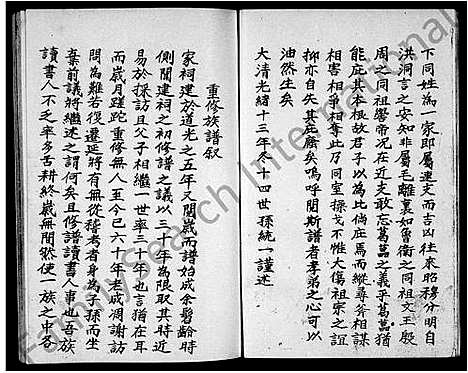 下同姓為一家即屬連支而吉凶往來昭穆分明自
洪洞言之安知非屬毛離裏如魯衛之同祖文王殷
周之同祖嚳帝況在近支敢忘葛藟之義乎葛藟猶
能庇其本根故君子以為比倘庇焉而縱尋斧相謀
相害相爭相奪此乃同室操戈不惟大傷祖宗之誼
抑亦自失其庇廕矣嗚呼閱斯譜者孝弟之心可以
油然生矣
大清光緒十三年冬十四世孫統一謹述
重修族譜叙
家祠建於道光之五年又閱歲而譜始成余髫齡時
側聞建祠之初修譜之議以三十年為限取其時近
易於採訪且父子相繼一世率三十年也言猶在耳
而歲月蹉跎重修無人至今已六十年老成凋謝訪
問為難若復遷延將有無從稽考者身為子孫而坐
棄前議將繼述之謂何矣且修譜讀書人事也吾族
讀書人不乏率多舌耕終歲無間然使一族之中各
FamilySearch International